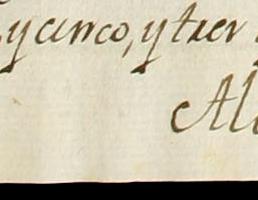 y cinco, y trer
Al